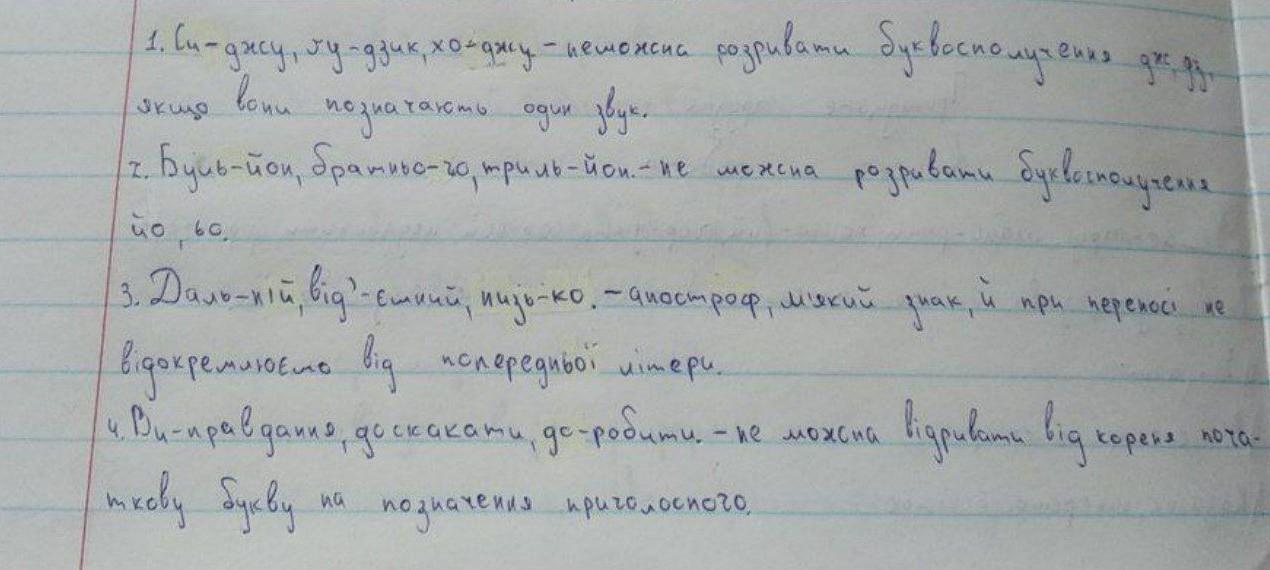 1. Си-джу, ґу-дзик, хо-джу - неможна розривати буквосполучення дж, дз,
якщо вони позначають один звук.
2. Буль-йон, братньо-го, триль-йон. - не можна розривати буквосполучення
йо, ьо.
3. Даль-ній, від'-ємний, низь-ко. - апостроф, м'який знак, й при переносі не
відокремлюємо від попередньої літери.
4. Ви-правдання, доскакати, до-робити. - не можна відривати від кореня поча-
ткову букву на позначення приголосного.